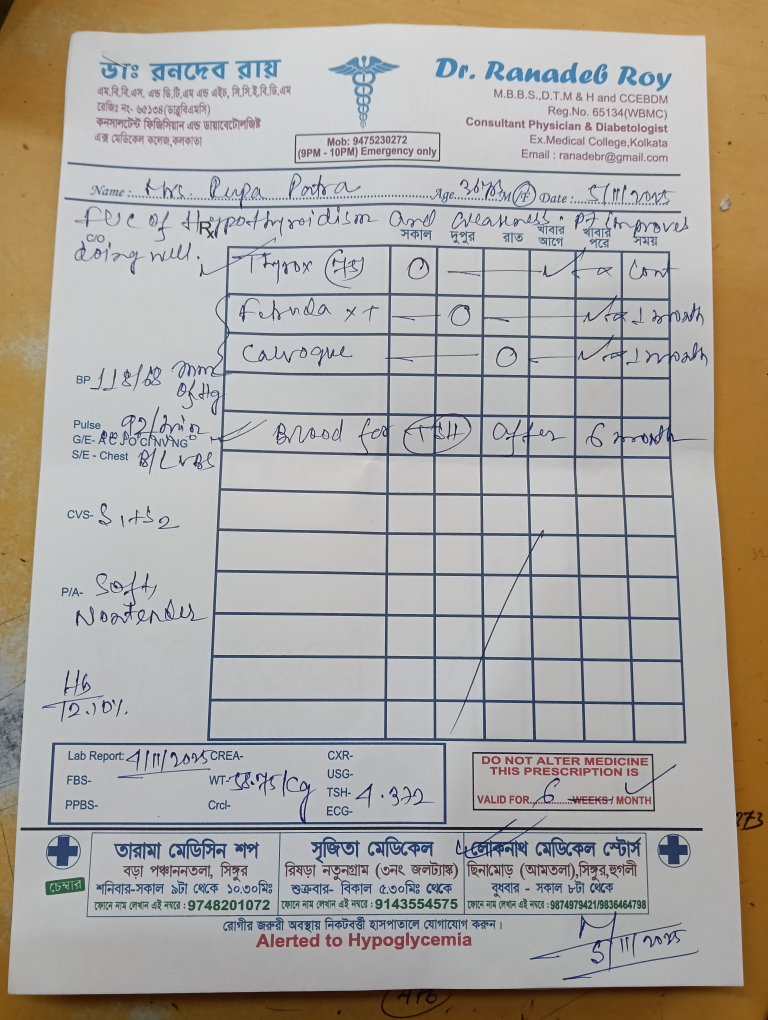 ডাঃ রনদেব রায়
এম.বি.বি.এস. এন্ড ডি.টি.এম এন্ড এইচ, সি.সি.ই.বি.ডি.এম
রেজিঃ নং- ৬৫১৩৪(ডাব্লুবিএমসি)
কনসালটেন্ট ফিজিসিয়ান এন্ড ডায়াবেটোলজিষ্ট
এক্স মেডিকেল কলেজ,কলকাতা
Mob: 9475230272
(9PM - 10PM) Emergency only
Dr. Ranadeb Roy
M.B.B.S.,D.T.M & H and CCEBDM
Reg.No. 65134(WBMC)
Consultant Physician & Diabetologist
Ex.Medical College,Kolkata
Email : ranadebr@gmail.com
Name : Mrs. Rupa Patra Age M/F Date : 5/11/2025
FUC of Hypothyroidism and weakness. Pt improves
C/O doing well.
Rx সকাল দুপুর রাত খাবার আগে খাবার পরে সময়
Thyrox (75) O — Cont
— O — 1 month
— O 1 month
BP 118/68 mm of Hg
Pulse 92/min
Blood for TSH after 6 month
G/E-
S/E - Chest B/L VBS
CVS- S1+S2
P/A- Soft, Nontender
Hb
12.10%
Lab Report: 4/11/2025 CREA- CXR-
FBS- WT- 58.75/Kg USG-
PPBS- Crcl- TSH- 4.372
ECG-
DO NOT ALTER MEDICINE
THIS PRESCRIPTION IS
VALID FOR 6 WEEKS / MONTH
চেম্বার
তারামা মেডিসিন শপ
বড়া পঞ্চাননতলা, সিঙ্গুর
শনিবার-সকাল ৯টা থেকে ১০.৩০মিঃ
ফোনে নাম লেখান এই নম্বরে : 9748201072
সৃজিতা মেডিকেল
রিষড়া নতুনগ্রাম (৩নং জলট্যাঙ্ক)
শুক্রবার- বিকাল ৫.৩০মিঃ থেকে
ফোনে নাম লেখান এই নম্বরে : 9143554575
লোকনাথ মেডিকেল স্টোর্স
ছিনামোড় (আমতলা),সিঙ্গুর,হুগলী
বুধবার - সকাল ৮টা থেকে
ফোনে নাম লেখান এই নম্বরে : 9874979421/9836464798
রোগীর জরুরী অবস্থায় নিকটবর্ত্তী হাসপাতালে যোগাযোগ করুন।
Alerted to Hypoglycemia
5/11/2025